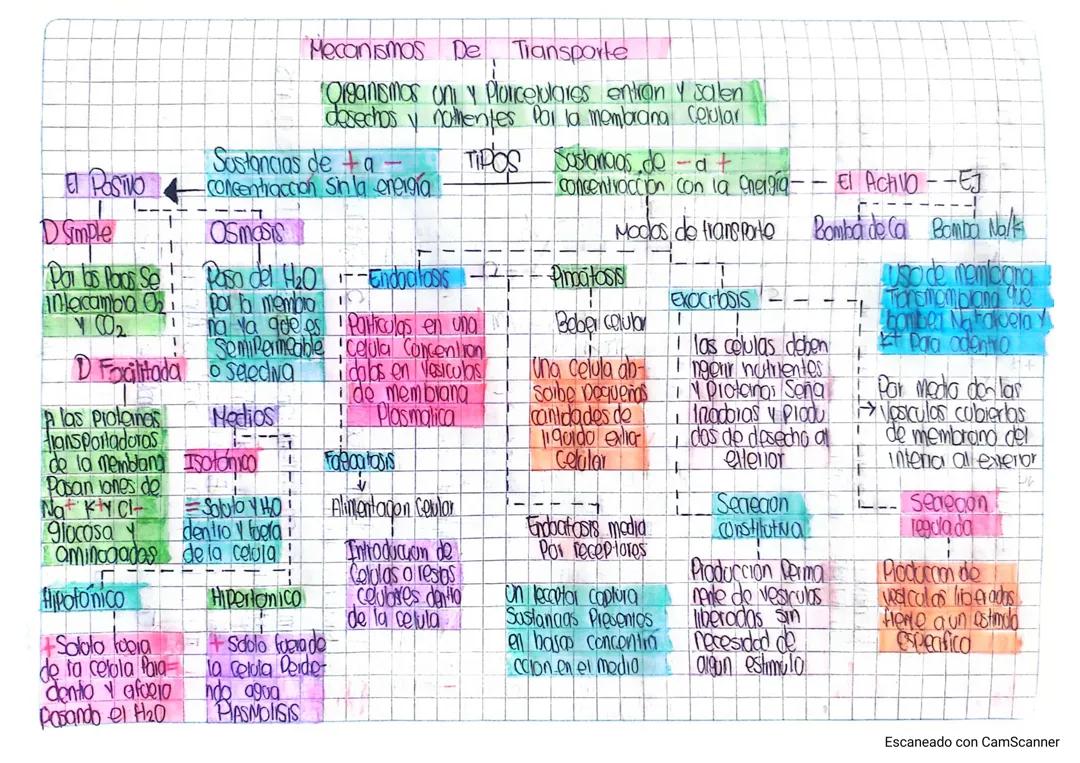 Mecanismos De Transporte
Organismos uni y Pluricelulares entran y salen
desechos y nutrientes Por la membrana Celular
TIPOS
Sustancias de + a -
concentracción Sin la energía
Sustancias de - a +
concentracción con la energía
El Pasivo
El Activo
EJ
Modos de transporte
Bomba de Ca
Bomba Na/k
D Simple
Por los Poros Se
intercambia O2
y CO2
D Facilitada
A las Proteinas
transportadoras
de la membrana
Pasan iones de
Na+ K+ Y Cl-
glucosa y
aminoacidos
Osmosis
Paso del H2O
por la membra
na ya que es
Semipermeable
o selectiva
Medios
Isotónico
= Soluto Y H2O
dentro Y fuera
de la celula
Hipotónico
+ Soluto fuera
de la celula Para=
dentro Y afuera
Pasando el H2O
Hipertonico
+ Soluto fuera de
la celula Perde-
ndo agua
PLASMOLISIS
Endocitosis
Particulas en una
celula Concentran
dolas en Vesiculas
de membrana
Plasmatica
Fagocitosis
Alimentacion Celular
Introduccion de
Celulas o restos
celulares dentro
de la celula
Pinocitosis
Beber celular
Una celula ab-
sorbe pequeñas
cantidades de
liquido extra-
Celular
Endocitosis media
Por receptores
Un receptor captura
Sustancias Presentes
en bajas concentra
ccion en el medio
Exocitosis
las celulas deben
ingerir nutrientes
y Proteinas Seña
lizadoras y Produ
dos de desecho al
exterior
Secrecion
constitutiva
Produccion Perma
nente de vesiculas
liberadas sin
necesidad de
algun estimulo
Uso de membrana
Transmembrana que
bombea Na+ afuera y
K+ Para adentro
Por medio don las
Vesiculas cubiertas
de membrana del
interia al exterior
Secrecion
regulada
Produccion de
vesiculas liberadas
frente a un estimulo
Especifico
Escaneado con CamScanner